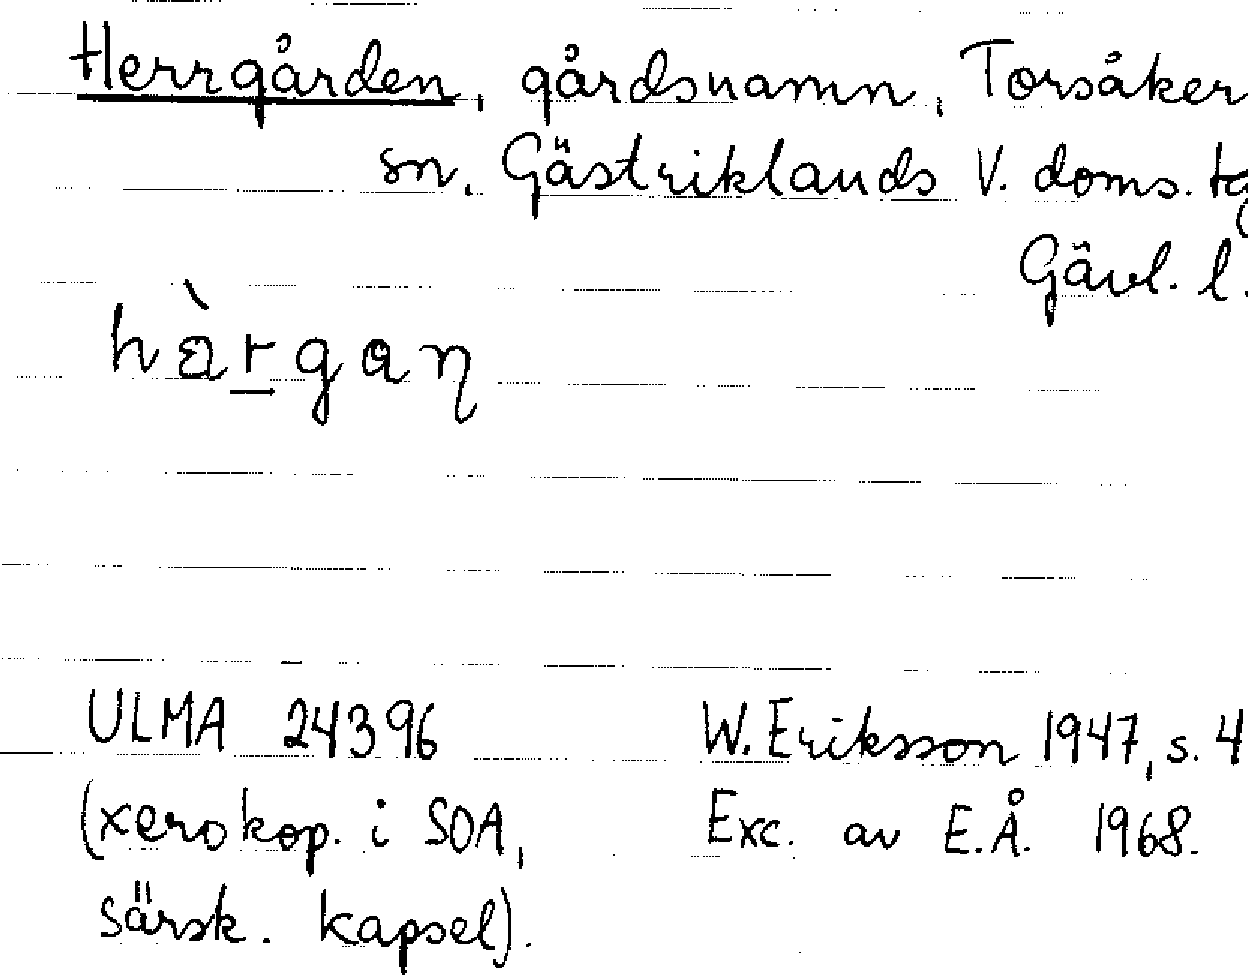 Herrgården, gårdsnamn, Torsåker
sn, Gästriklands V. doms. tg
Gävl. l.
hàrgaŋ
ULMA 24396 W. Eriksson 1947, s. 4
(xerokop. i SOA, Exc. av E.Å. 1968.
särsk. kapsel).